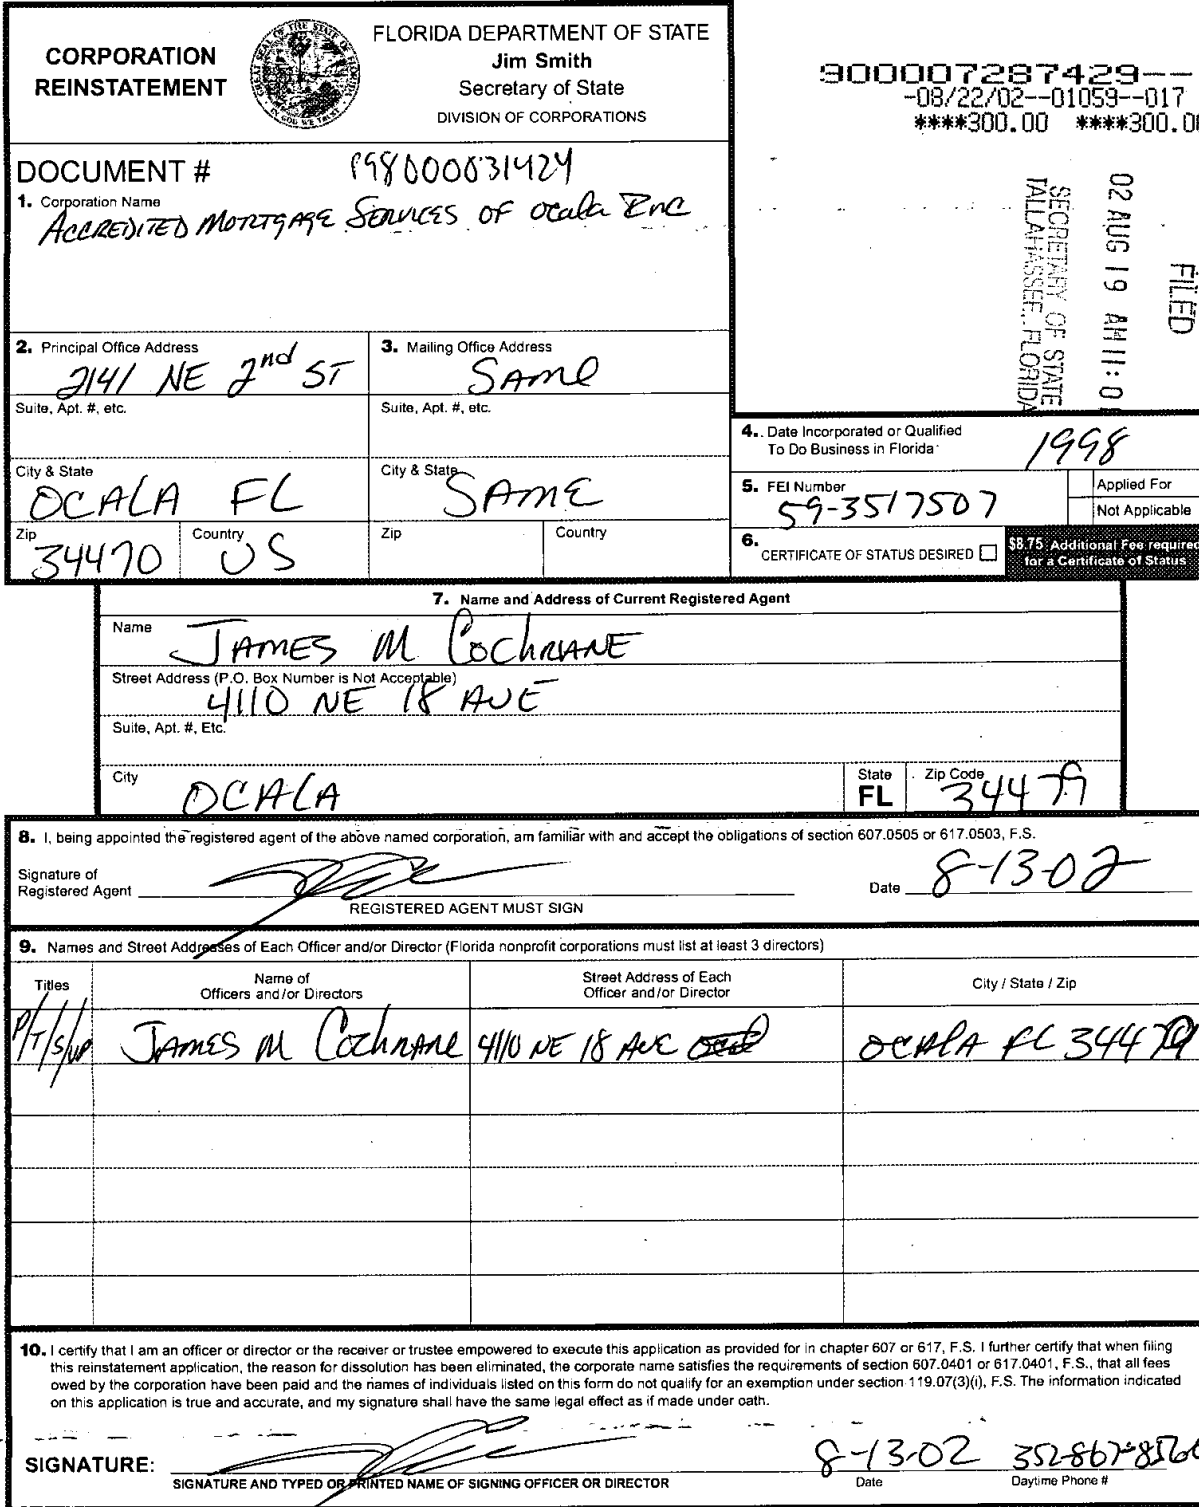 CORPORATION
REINSTATEMENT
FLORIDA DEPARTMENT OF STATE
Jim Smith
Secretary of State
DIVISION OF CORPORATIONS
900007287429--
-08/22/02--01059--017
****300.00 ****300.00
DOCUMENT # P98000031424
1. Corporation Name
ACCREDITED MORTGAGE SERVICES OF Ocala Inc
FILED
02 AUG 19 AM 11: 0
SECRETARY OF STATE
TALLAHASSEE, FLORIDA
2. Principal Office Address
2141 NE 2nd ST
3. Mailing Office Address
SAME
Suite, Apt. #, etc.
Suite, Apt. #, etc.
City & State
OCALA FL
City & State
SAME
Zip
34470
Country
US
Zip
Country
4. Date Incorporated or Qualified
To Do Business in Florida
1998
5. FEI Number
59-3517507
Applied For
Not Applicable
6. CERTIFICATE OF STATUS DESIRED
$8.75 Additional Fee required
for a Certificate of Status
7. Name and Address of Current Registered Agent
Name
JAMES M COCHRANE
Street Address (P.O. Box Number is Not Acceptable)
4110 NE 18 AVE
Suite, Apt. #, Etc.
City
OCALA
State
FL
Zip Code
34479
8. I, being appointed the registered agent of the above named corporation, am familiar with and accept the obligations of section 607.0505 or 617.0503, F.S.
Signature of
Registered Agent
REGISTERED AGENT MUST SIGN
Date 8-13-02
9. Names and Street Addresses of Each Officer and/or Director (Florida nonprofit corporations must list at least 3 directors)
Titles
Name of
Officers and/or Directors
Street Address of Each
Officer and/or Director
City / State / Zip
P/T/S/VP JAMES M COCHRANE 4110 NE 18 AVE OCALA FL 34479
10. I certify that I am an officer or director or the receiver or trustee empowered to execute this application as provided for in chapter 607 or 617, F.S. I further certify that when filing
this reinstatement application, the reason for dissolution has been eliminated, the corporate name satisfies the requirements of section 607.0401 or 617.0401, F.S., that all fees
owed by the corporation have been paid and the names of individuals listed on this form do not qualify for an exemption under section 119.07(3)(i), F.S. The information indicated
on this application is true and accurate, and my signature shall have the same legal effect as if made under oath.
SIGNATURE:
SIGNATURE AND TYPED OR PRINTED NAME OF SIGNING OFFICER OR DIRECTOR
8-13-02
Date
352-867-8560
Daytime Phone #